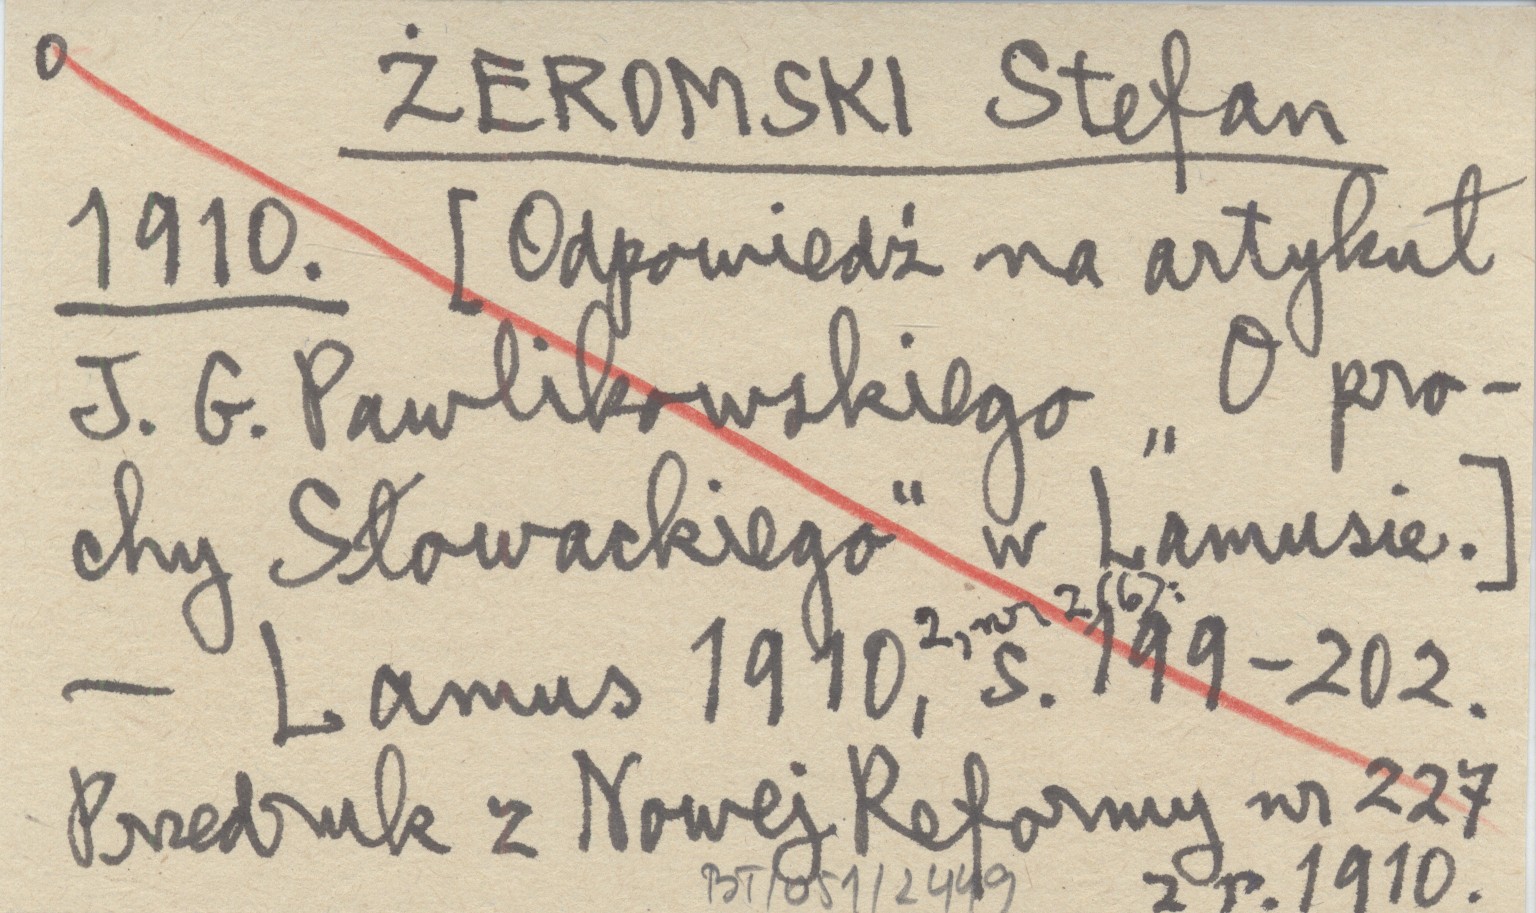 o ŻEROMSKI Stefan
1910. [Odpowiedź na artykuł
J. G. Pawlikowskiego „O pro-
chy Słowackiego" w Lamusie.]
2, nr 2(6):
— Lamus 1910, s. 199-202.
Przedruk z Nowej Reformy nr 227
z r. 1910.
BT/051/2449